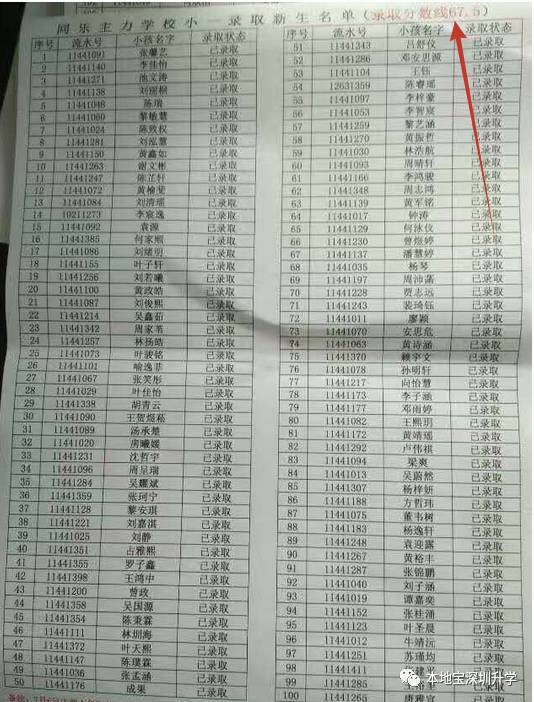 同乐主力学校小一录取新生名单(录取分数线67.5)
序号 流水号 小孩名字 录取状态
1 11441091 张馨艺 已录取
2 11441140 李佳怡 已录取
3 11441271 池文涛 已录取
4 11441138 刘丽桐 已录取
5 11441048 陈瑞 已录取
6 11441060 黎敏慧 已录取
7 11441024 陈致权 已录取
8 11441281 刘泓慧 已录取
9 11441150 黄鑫如 已录取
10 11441263 谢文彬 已录取
11 11441247 陈芷轩 已录取
12 11441072 黄榆斐 已录取
13 11441084 刘清瑶 已录取
14 10211273 李宸逸 已录取
15 11441092 袁源 已录取
16 11441385 何家顺 已录取
17 11441086 刘绪明 已录取
18 11441155 叶子轩 已录取
19 11441256 刘若曦 已录取
20 11441100 黄政皓 已录取
21 11441087 刘俊熙 已录取
22 11441214 吴鑫茹 已录取
23 11441342 周家苇 已录取
24 11441257 林扬皓 已录取
25 11441073 叶骏铭 已录取
26 11441101 喻逸菲 已录取
27 11441067 张笑彤 已录取
28 11441029 叶佳怡 已录取
29 11441338 胡青云 已录取
30 11441090 王贺煜崧 已录取
31 11441089 汤承楚 已录取
32 11441020 房曦媛 已录取
33 11441231 沈哲宇 已录取
34 11441096 周呈瑞 已录取
35 11441284 吴耀斌 已录取
36 11441359 张珂宁 已录取
37 11441128 黎安琪 已录取
38 11441221 刘嘉淇 已录取
39 11441025 刘静 已录取
40 11441351 占雅熙 已录取
41 11441355 罗子鑫 已录取
42 11441398 王鸿中 已录取
43 11441200 曾政 已录取
44 11441358 吴国源 已录取
45 11441354 陈秉霖 已录取
46 11441111 林圳海 已录取
47 11441372 叶天熙 已录取
48 11441147 陈璞霖 已录取
49 11441036 张孟涵 已录取
50 11441176 成果 已录取
序号 流水号 小孩名字 录取状态
51 11441343 吕舒仪 已录取
52 11441286 邓安思源 已录取
53 11441104 王钰 已录取
54 12631359 陈睿瑶 已录取
55 11441097 李梓豪 已录取
56 11441053 李智宸 已录取
57 11441259 黎艺涵 已录取
58 11441270 黄振哲 已录取
59 11441030 林浩航 已录取
60 11441093 周靖轩 已录取
61 11441166 李鸿骏 已录取
62 11441348 周志鸿 已录取
63 11441139 黄军铭 已录取
64 11441017 钟涛 已录取
65 11441129 何泳仪 已录取
66 11441230 曾煜婷 已录取
67 11441137 潘慧婷 已录取
68 11441035 杨琴 已录取
69 11441197 周沛菡 已录取
70 11441228 贾志远 已录取
71 11441243 裴琦钰 已录取
72 11441011 廖颖 已录取
73 11441070 安思危 已录取
74 11441063 黄诗涵 已录取
75 11441370 赖宇文 已录取
76 11441078 孙明轩 已录取
77 11441217 向怡慧 已录取
78 11441173 李子涵 已录取
79 11441177 邓雨婷 已录取
80 11441082 王熙玥 已录取
81 11441172 黄靖瑶 已录取
82 11441292 卢伟祺 已录取
83 11441094 梁爽 已录取
84 11441013 吴蔚然 已录取
85 11441307 杨梓妍 已录取
86 11441188 方哲玮 已录取
87 11441105 董韦树 已录取
88 11441183 杨逸轩 已录取
89 11441248 袁迎露 已录取
90 11441267 黄裕丰 已录取
91 11441287 张锦鹏 已录取
92 11441040 刘子涵 已录取
93 11441019 谭嘉奕 已录取
94 11441152 张桂涌 已录取
95 11441123 叶圣晨 已录取
96 11441012 牛靖沅 已录取
97 11441251 苏瑾均 已录取
98 11441411
99 11441285
100 11441265 唐雅宣
本地宝深圳升学